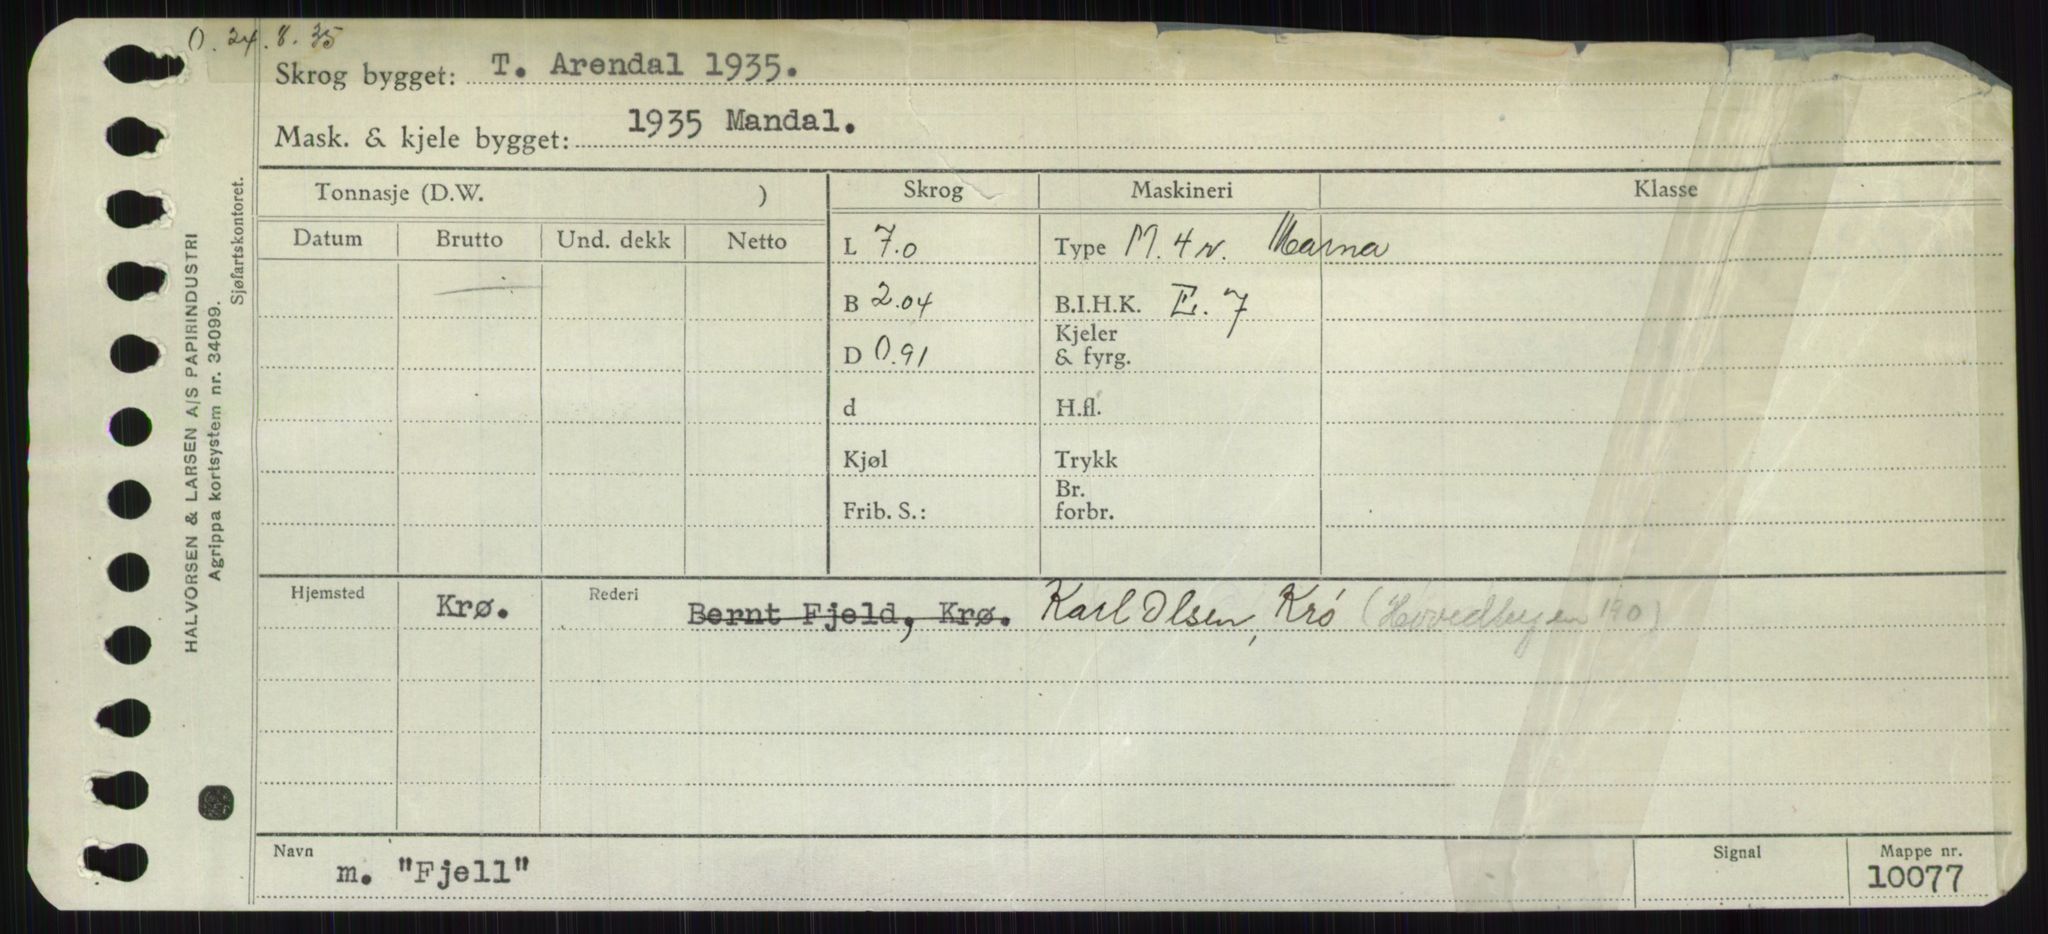 O. 24.8.35
Skrog bygget: T. Arendal 1935.
Mask. & kjele bygget: 1935 Mandal.
Tonnasje (D.W. ) Skrog Maskineri Klasse
Datum Brutto Und. dekk Netto
L 7.0 Type M. 4 v. Marna
B 2.04 B.I.H.K. E. 7
D 0.91 Kjeler & fyrg.
d H.fl.
Kjøl Trykk
Frib. S.: Br. forbr.
Hjemsted Krø. Rederi Bernt Fjeld, Krø. Karl Olsen, Krø
Navn m. "Fjell" Signal Mappe nr. 10077
HALVORSEN & LARSEN A/S PAPIRINDUSTRI
Agrippa kortsystem nr. 34099.
Sjøfartskontoret.